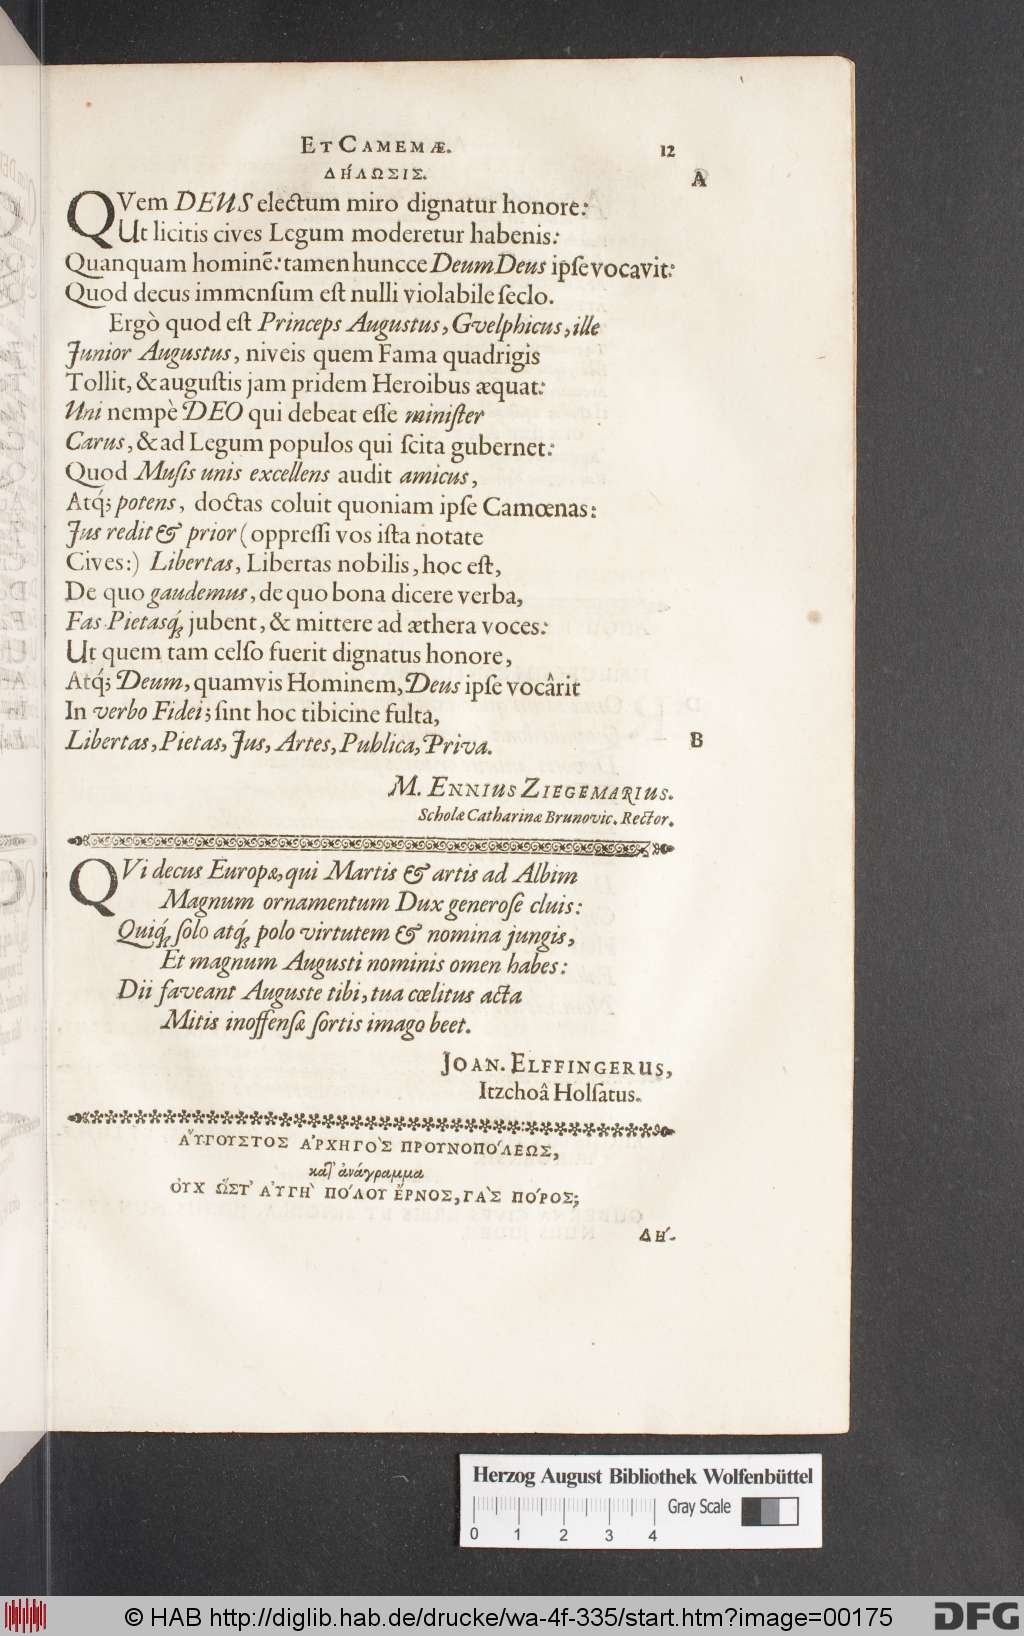 ET CAMEMÆ. 12
ΔΉΛΩΣΙΣ.
A
QVem DEUS electum miro dignatur honore:
Ut licitis cives Legum moderetur habenis:
Quanquam hominē: tamen huncce Deum Deus ipſe vocavit:
Quod decus immenſum eſt nulli violabile ſeclo.
Ergò quod eſt Princeps Auguſtus, Gvelphicus, ille
Junior Auguſtus, niveis quem Fama quadrigis
Tollit, & auguſtis jam pridem Heroibus æquat:
Uni nempè DEO qui debeat eſſe miniſter
Carus, & ad Legum populos qui ſcita gubernet:
Quod Muſis unis excellens audit amicus,
Atq́; potens, doctas coluit quoniam ipſe Camœnas:
Jus redit & prior (oppreſſi vos iſta notate
Cives:) Libertas, Libertas nobilis, hoc eſt,
De quo gaudemus, de quo bona dicere verba,
Fas Pietasq́; jubent, & mittere ad æthera voces:
Ut quem tam celſo fuerit dignatus honore,
Atq́; Deum, quamvis Hominem, Deus ipſe vocârit
In verbo Fidei; ſint hoc tibicine fulta,
Libertas, Pietas, Jus, Artes, Publica, Priva.
B
M. ENNIUS ZIEGEMARIUS.
Scholæ Catharinæ Brunovic. Rector.
QVi decus Europæ, qui Martis & artis ad Albim
Magnum ornamentum Dux generoſe cluis:
Quiq́; ſolo atq́; polo virtutem & nomina jungis,
Et magnum Auguſti nominis omen habes:
Dii faveant Auguſte tibi, tua cœlitus acta
Mitis inoffenſæ ſortis imago beet.
JOAN. ELFFINGERUS,
Itzchoâ Holſatus.
ΑὝΓΟΥΣΤΟΣ ἈΡΧΗΓῸΣ ΠΡΟΥΝΟΠΌΛΕΩΣ,
κατ' ἀνάγραμμα
ΟΥ̓Χ ὭΣΤ' ΑΥ̓ΓῊ ΠΌΛΟΥ ἜΡΝΟΣ, ΓᾺΣ ΠΌΡΟΣ;
ΔΉ-
Herzog August Bibliothek Wolfenbüttel
Gray Scale
0 1 2 3 4
© HAB http://diglib.hab.de/drucke/wa-4f-335/start.htm?image=00175
DFG